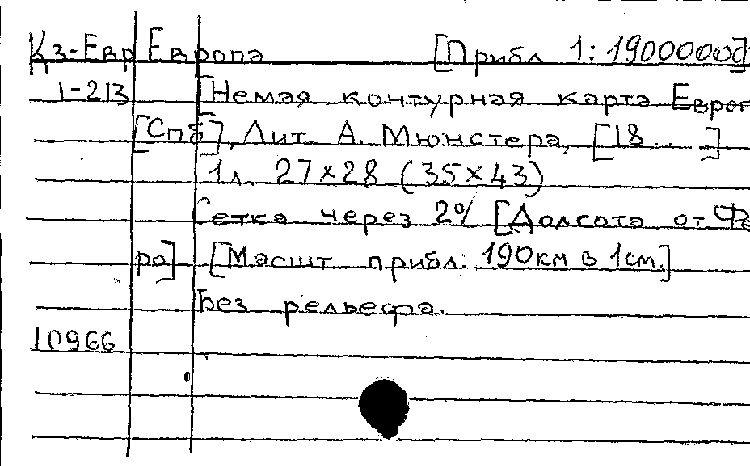 Кз-Евр Европа [Прибл 1:19000000]
1-213 [Немая контурная карта Европ
[Спб], Лит. А. Мюнстера, [18... ]
1л. 27×28 (35×43)
Сетка через 2% [Долгота от Фе
ро] [Масшт. прибл. 190км в 1см.]
Без рельефа.
10966